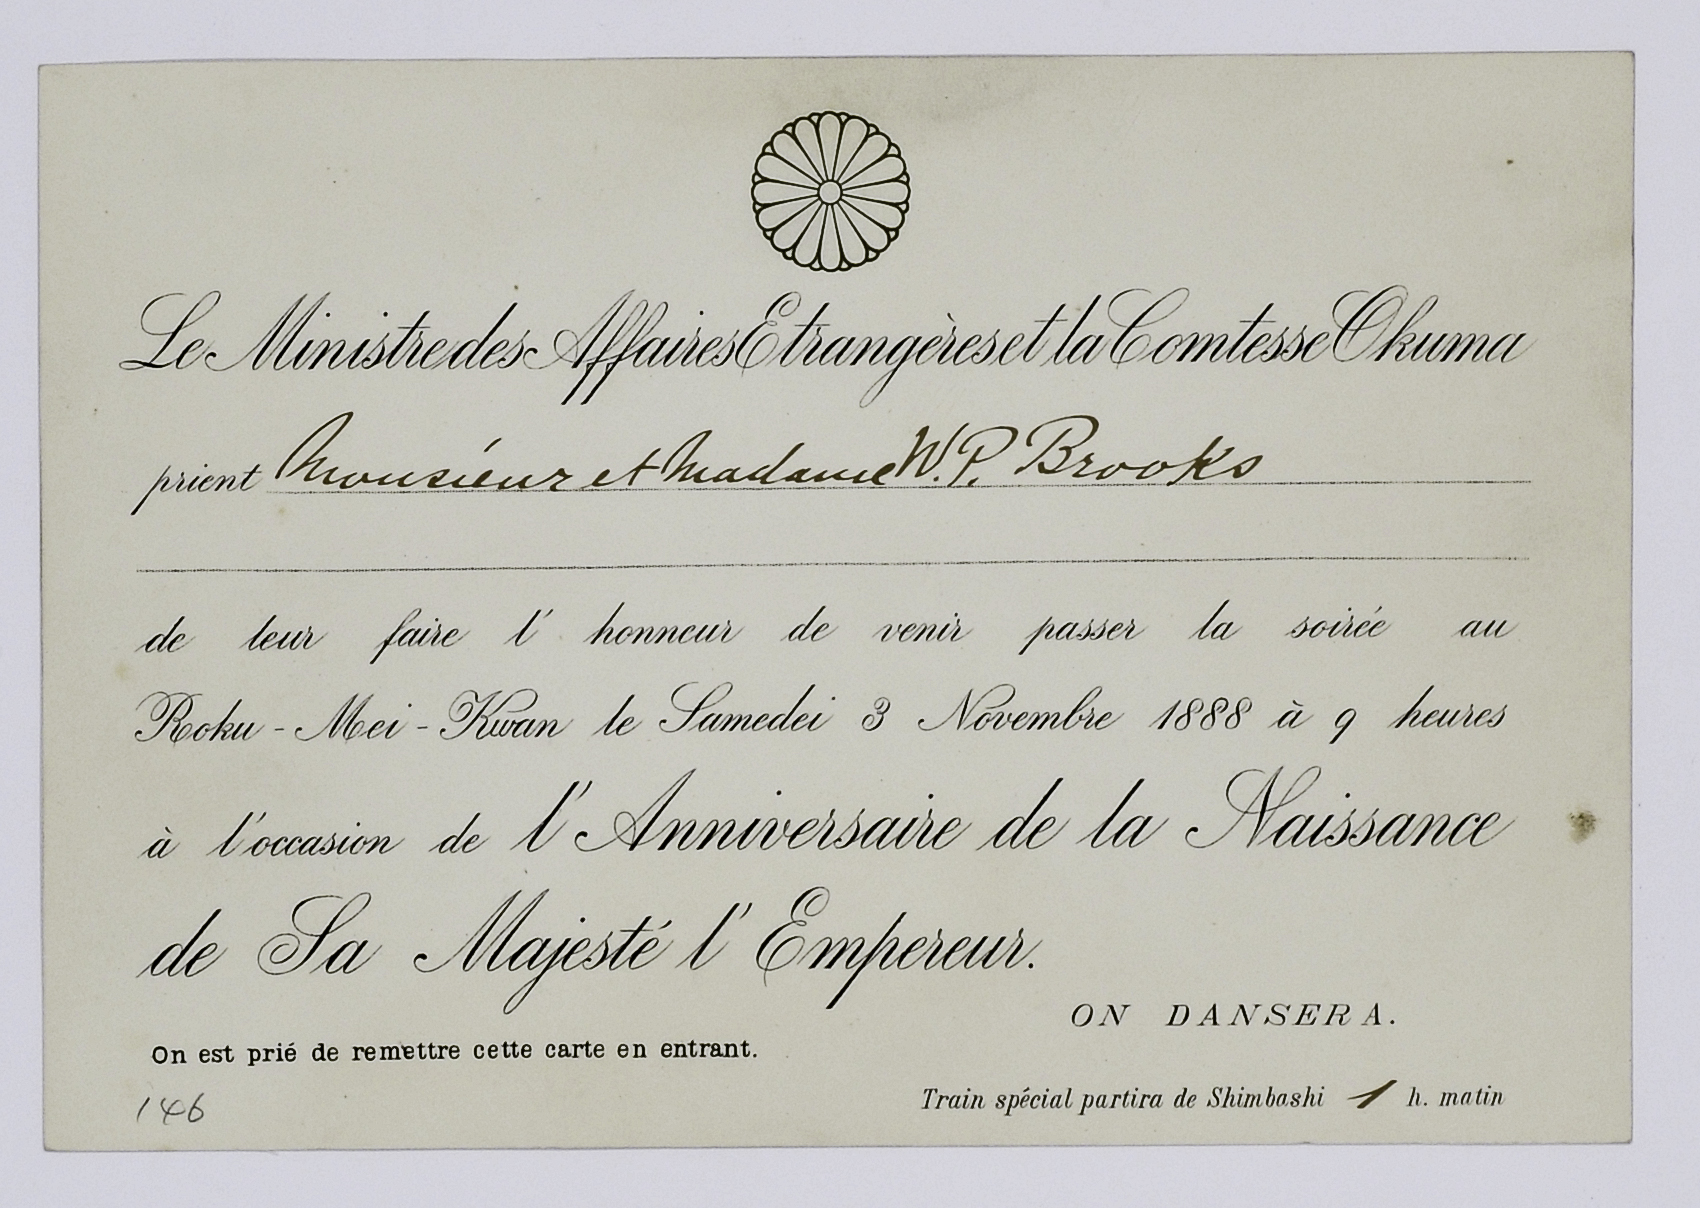 Le Ministre des Affaires Etrangères et la Comtesse Okuma
prient Monsieur et Madame W. P. Brooks
de leur faire l' honneur de venir passer la soirée au
Roku - Mei - Kwan le Samedei 3 Novembre 1888 à 9 heures
à l'occasion de l'Anniversaire de la Naissance
de Sa Majesté l' Empereur.
ON DANSERA.
On est prié de remettre cette carte en entrant.
Train spécial partira de Shimbashi 1 h. matin
146